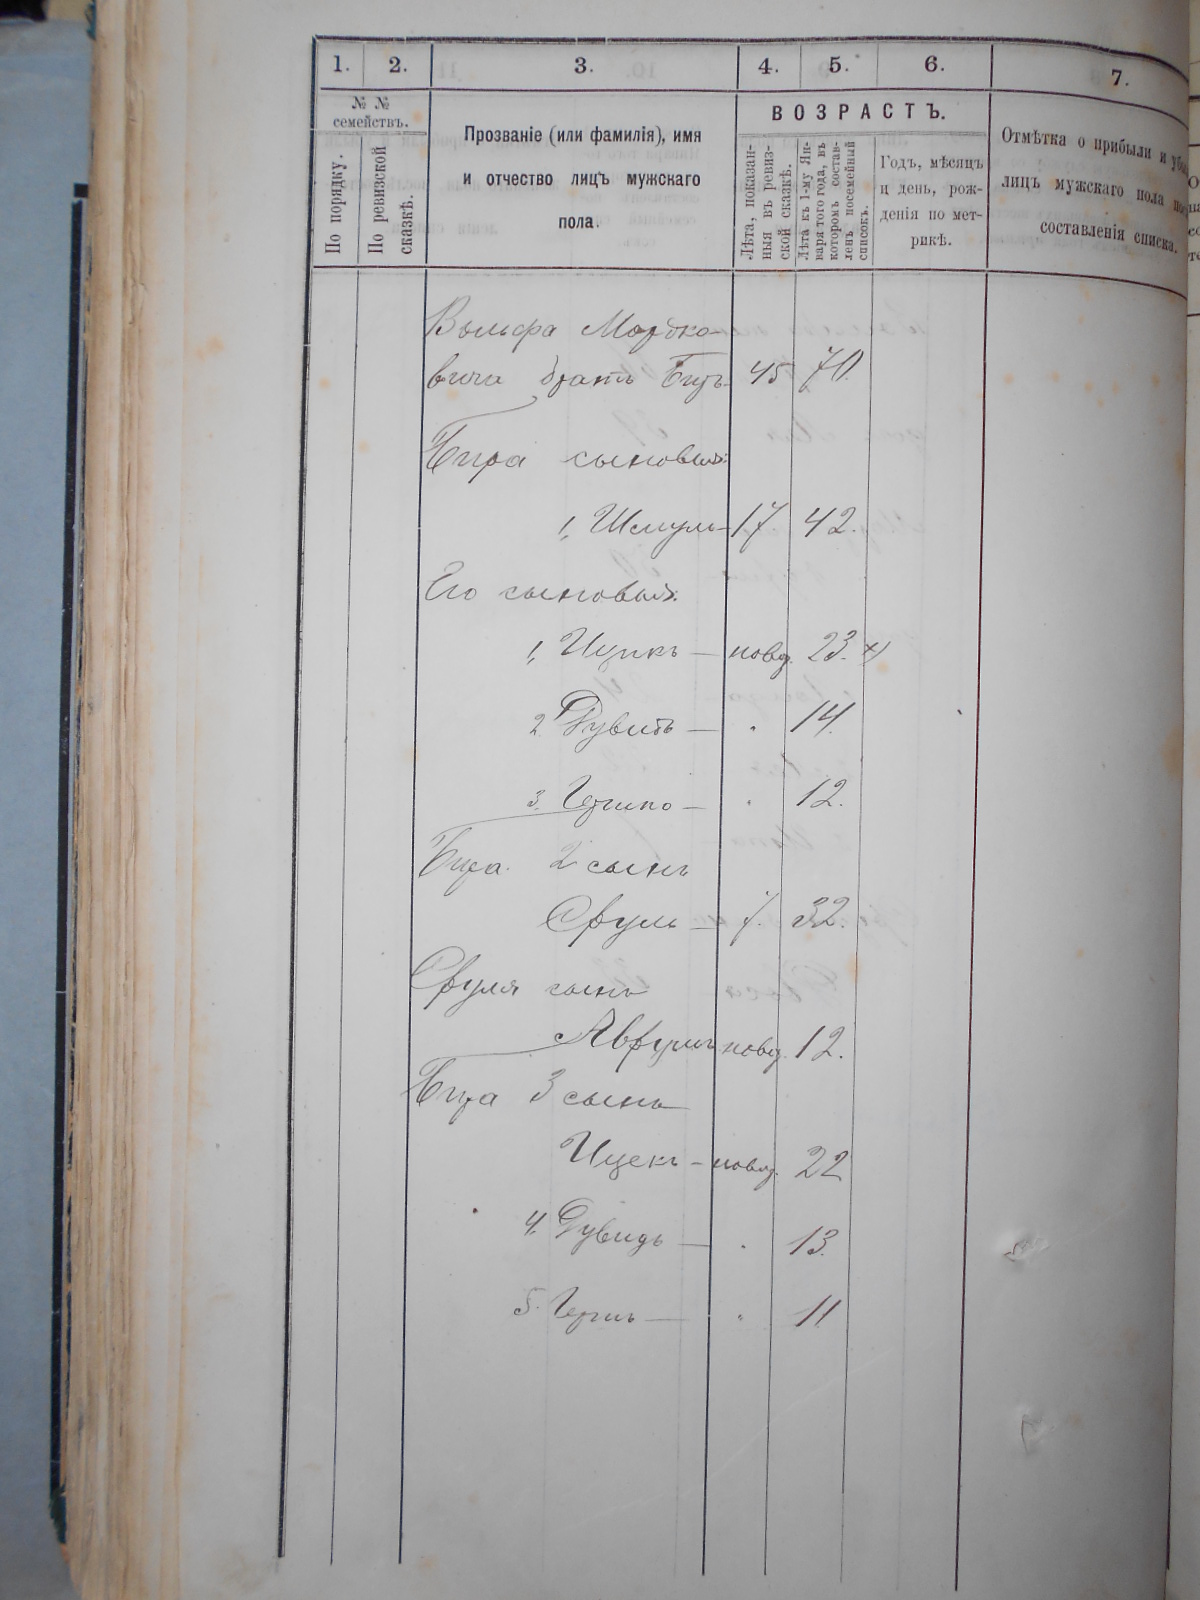 1. 2. 3. 4. 5. 6. 7.
№ № семействъ.
По порядку.
По ревизской сказкѣ.
Прозваніе (или фамилія), имя
и отчество лицъ мужскаго
пола.
ВОЗРАСТЪ.
Лѣта, показан-
ныя въ ревиз-
ской сказкѣ.
Лѣта къ 1-му Ян-
варя того года, въ
которомъ состав-
ленъ посемейный
списокъ.
Годъ, мѣсяцъ
и день, рож-
денія по мет-
рикѣ.
Отмѣтка о прибыли и
лицъ мужскаго пола
составленія списка.
Вольфа Мордко-
вича братъ 45 70.
сыновья:
1, Шмуль 17. 42.
Его сыновья:
1, Ицикъ — новор. 23. x)
2. Дувитъ — " 14.
3. Гершко — " 12.
2 сынъ
Сруль — 7. 32.
Сруля сынъ
Аврумъ новор. 12.
3 сынъ
Ицекъ — новор. 22
4. Дувидъ — " 13.
5. Гершъ — " 11